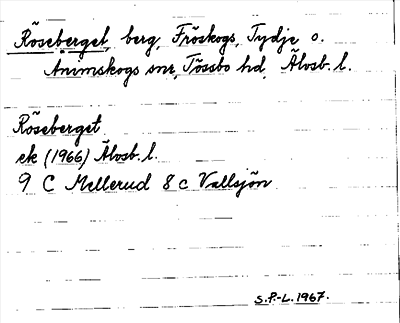 Röseberget, berg, Fröskogs, Tydje o.
Ånimskogs snr, Tössbo hd, Älvsb. l.
Röseberget
ek (1966) Älvsb. l.
9 C Mellerud 8 c Vallsjön
S.P.-L. 1967.